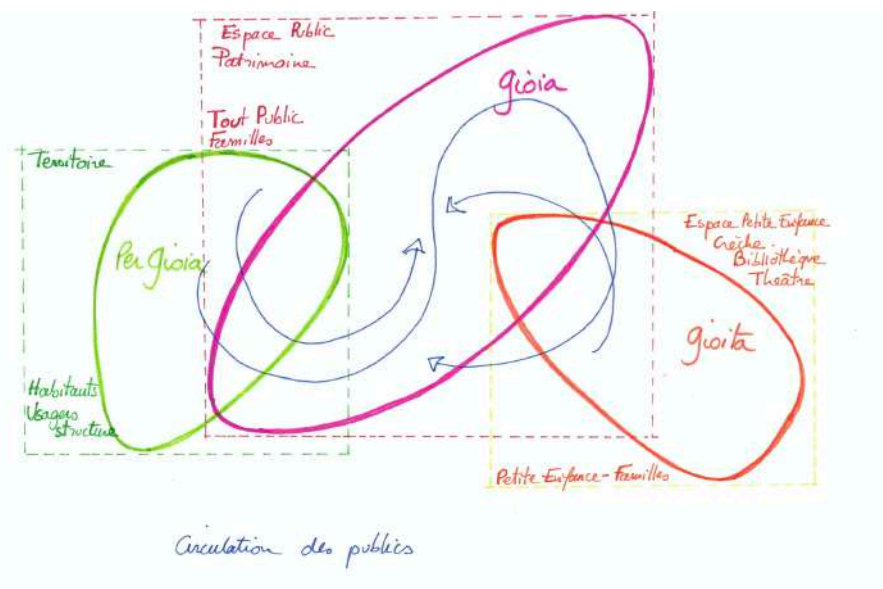 Espace Public
Patrimoine
Tout Public
Familles
gioia
Territoire
Per gioia
Habitants
Usagers
structure
Espace Petite Enfance
Crèche.
Bibliothèque
Théâtre
gioita
Petite-Enfance-Familles
Circulation des publics